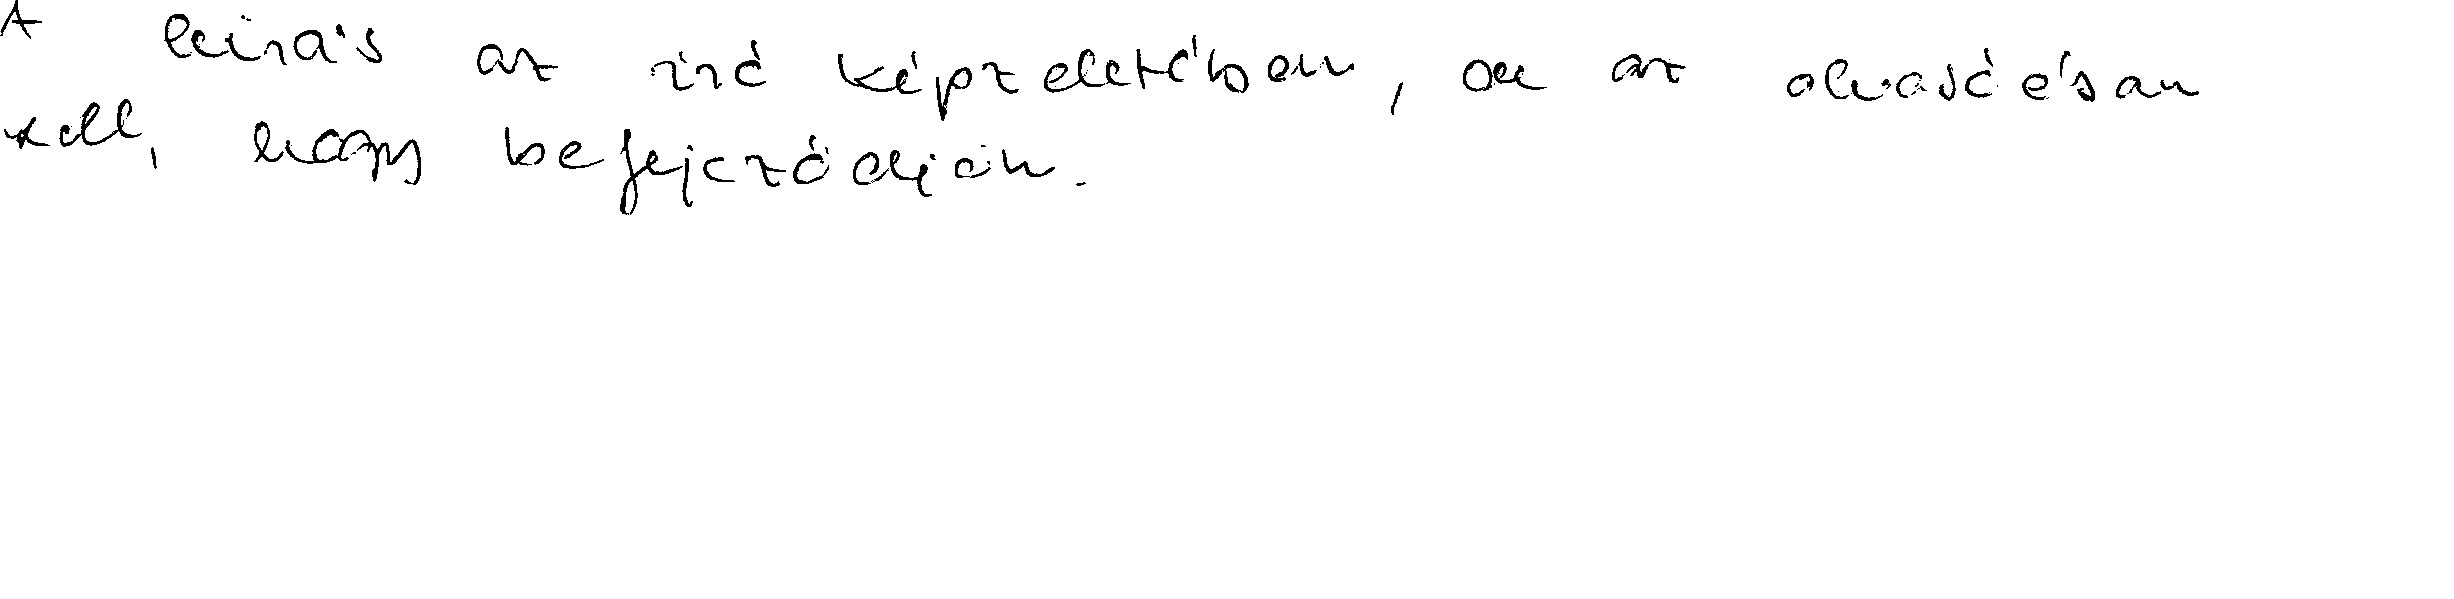 A leírás az író képzeletében, de az olvasóésan
kell, hogy befejeződjön.